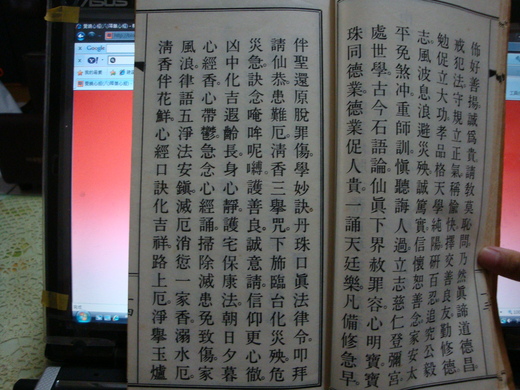 佈好善揚誠爲貴請教莫恥問乃然眞諦道德昌
戒犯法守規立正氣稱愉快擇交善良友勤修德
勉促立大功孝品格天學純陽研百忍追究公毅
志風波息浪避災殃誠篤實信懷恕善念家安太
平免煞沖重師訓愼聽誨人過立志慈仁登彌宮
處世學古今石語論仙眞下界赦罪容心明寶寶
珠同德業德業促人貴一誦天廷樂凡備修急昌
伴聖還原脫罪傷學妙訣丹珠口眞法律令叩拜
請仙恭患難厄淸香三擧咒下肺臨台化災殃危
災急訣念唵哞呢嚩護善良誠意請信仰更心徹
凶中化吉遐齡長身心靜護宅保康法朝日夕暮
心經香心帶鬱急念心經誦掃除滅患免致傷家
風浪律語五淨法安鎭滅厄消愆一家香溺水厄
淸香伴花鮮心經口訣化吉祥路上厄淨擧玉爐
三
四
ASUS
Google